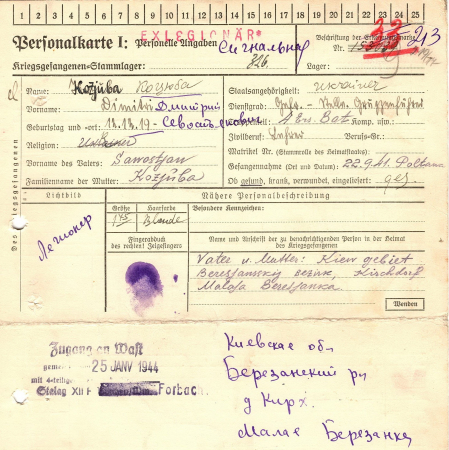 1 2 3 4 5 6 7 8 9 10 11 12 13 14 15 16 17 18 19 20 21 22 23 24 25
EXLEGIONÄR
Personalkarte I: Personelle Angaben
Сигнальна
Beschriftung der Erkennungsmarke
Nr.
213
Kriegsgefangenen-Stammlager:
326.
Lager:
Des Kriegsgefangenen
Name: Kožjuba Козюба
Staatsangehörigkeit: Ukrainer
Dimitri Дмитрий
Dienstgrad:
Geburtstag und -ort: 13.12.19
Севостьянович
Truppenteil: Bat. Komp. usw.:
Religion:
Zivilberuf: Lehrer Berufs-Gr.:
Matrikel Nr. (Stammrolle des Heimatstaates):
Vorname des Vaters: Samostjan
Gefangennahme (Ort und Datum): 22.9.41. Poltana
Familienname der Mutter: Kožjuba
Ob gesund, krank, verwundet, eingeliefert: ges.
Lichtbild
Nähere Personalbeschreibung
Größe
Haarfarbe
Besondere Kennzeichen:
Легионер
Blonde
Fingerabdruck
des rechten! Zeigefingers
Name und Anschrift der zu benachrichtigenden Person in der Heimat
des Kriegsgefangenen
Vater u. Mutter: Kiew gebiet
Beresjansky bezirk, Kirschdorf
Malaja Beresjanka
Wenden
Zugang an Wast
25 JANV 1944
Stalag XII F Forbach.
Киевскае обл
Березанский р
д Кирх.
Малае Березанка